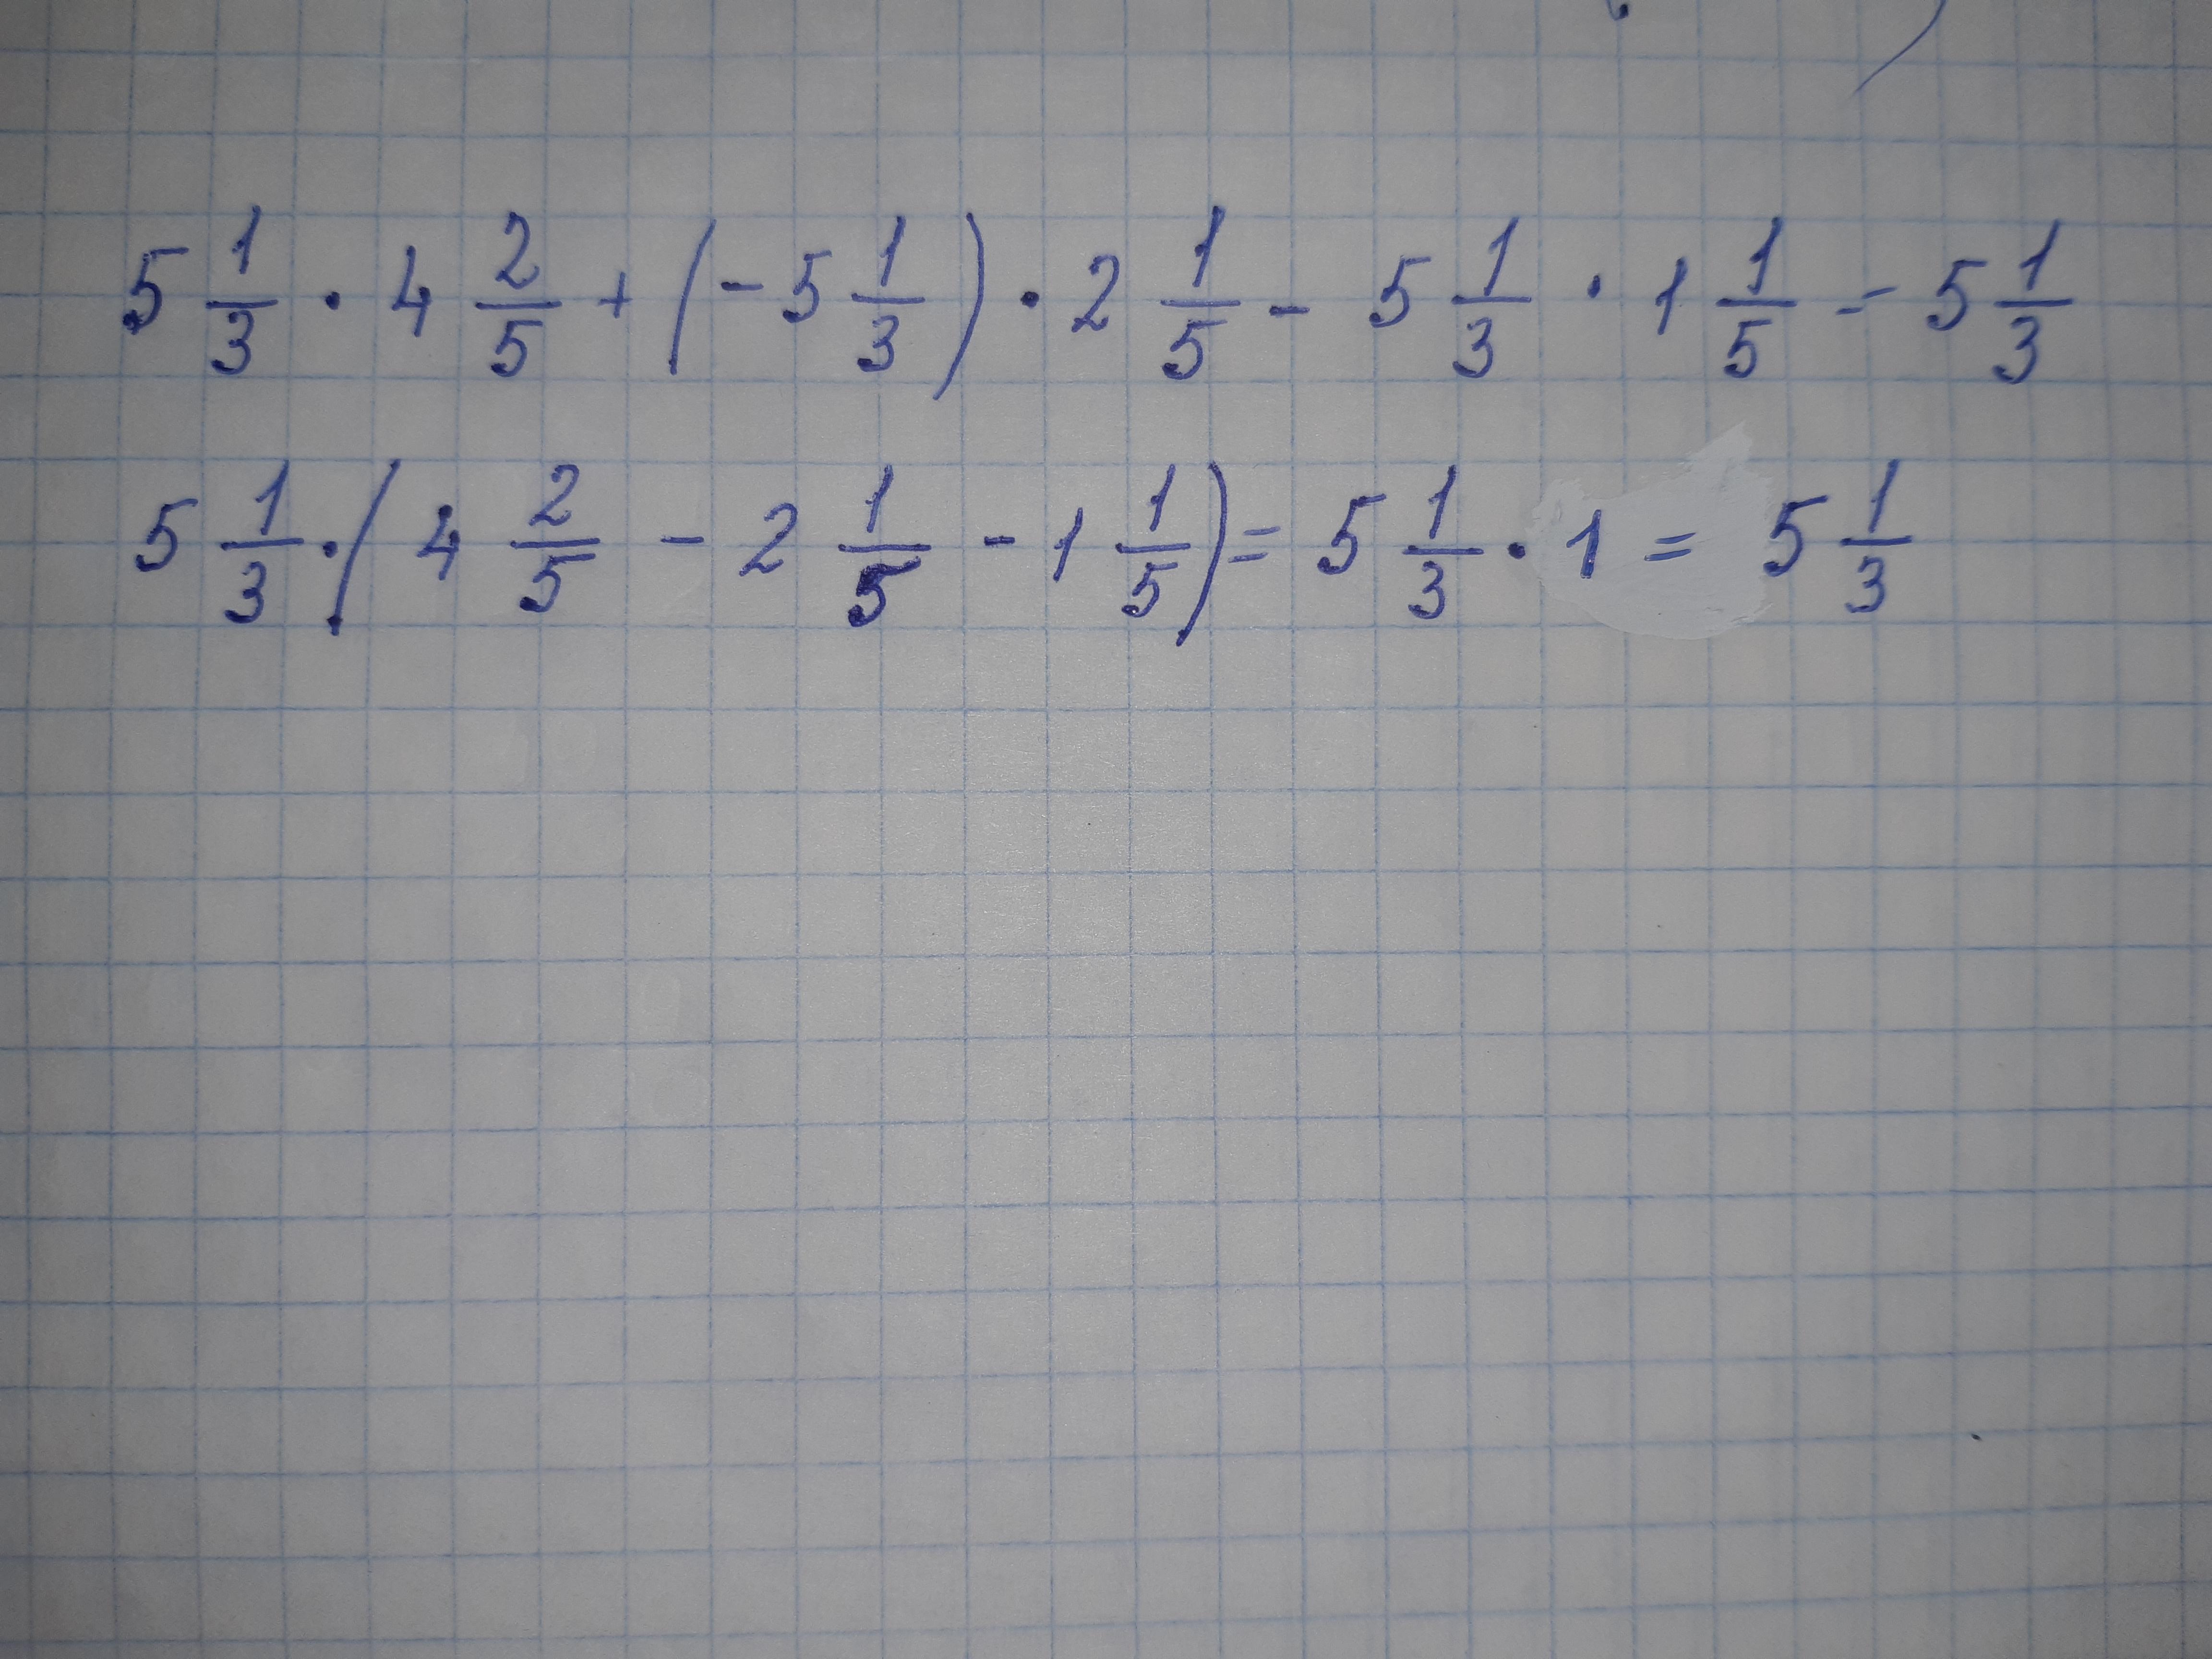 5 1/3 · 4 2/5 + (- 5 1/3) · 2 1/5 - 5 1/3 · 1 1/5 = 5 1/3
5 1/3 · (4 2/5 - 2 1/5 - 1 1/5) = 5 1/3 · 1 = 5 1/3